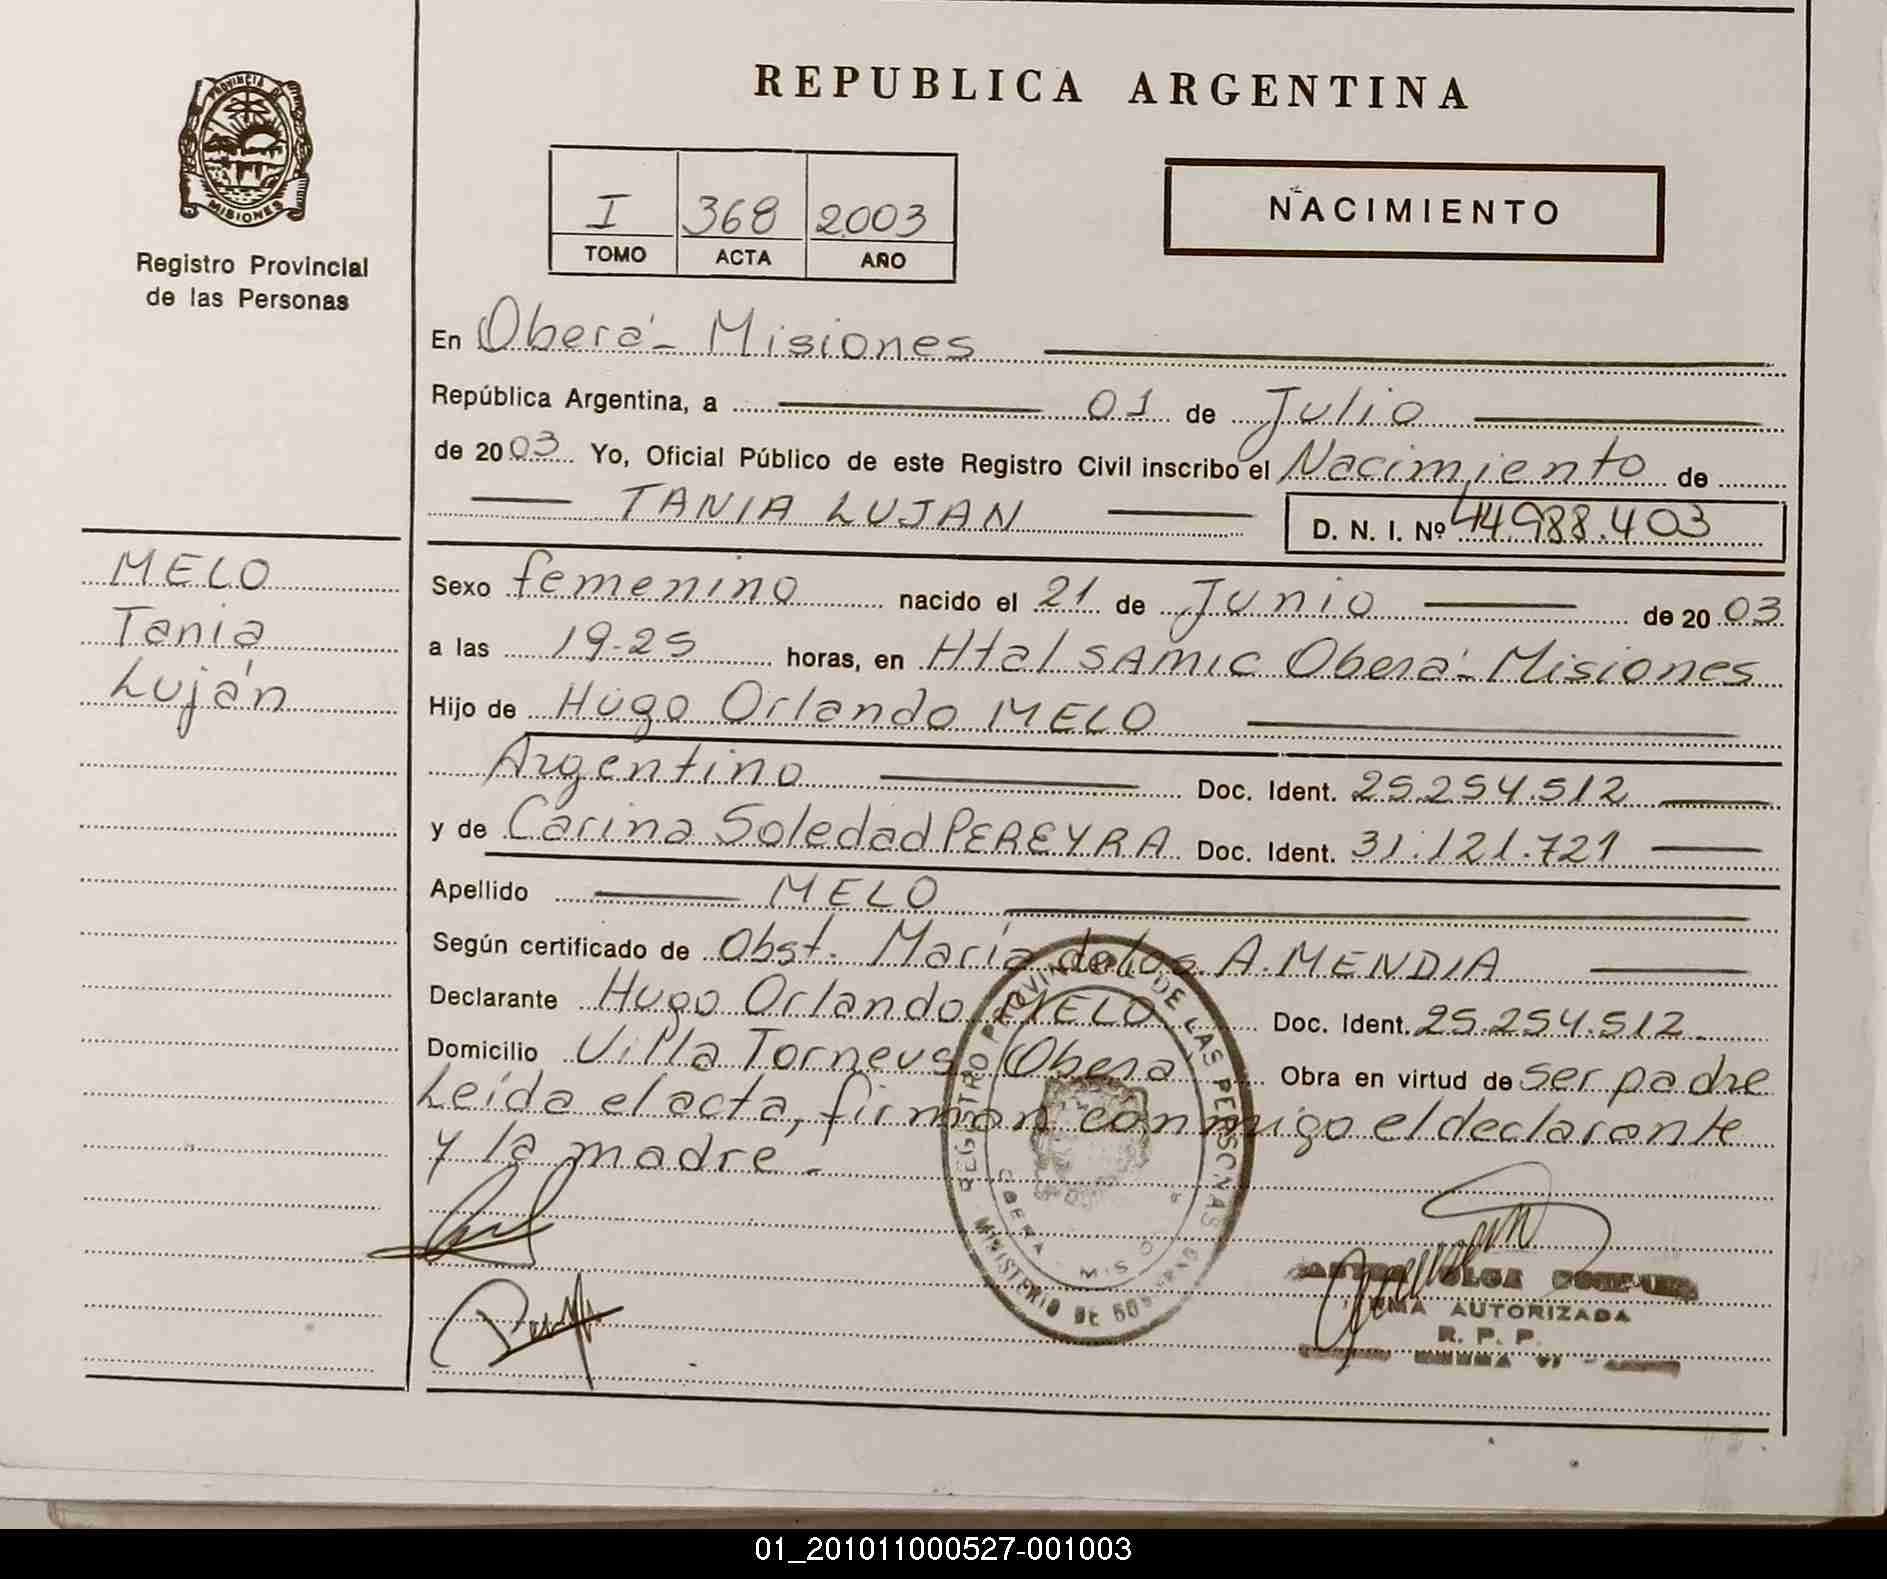 REPUBLICA ARGENTINA
PROVINCIA DE
MISIONES
Registro Provincial
de las Personas
I 368 2003
TOMO ACTA AÑO
NACIMIENTO
En Oberá - Misiones
República Argentina, a 01 de Julio
de 2003 Yo, Oficial Público de este Registro Civil inscribo el Nacimiento de
TANIA LUJAN D. N. I. Nº 44.988.403
MELO
Tania
Luján
Sexo femenino nacido el 21 de Junio de 2003
a las 19-25 horas, en Htal SAMIC Oberá - Misiones
Hijo de Hugo Orlando MELO
Argentino Doc. Ident. 25.254.512
y de Carina Soledad PEREYRA Doc. Ident. 31.121.721
Apellido MELO
Según certificado de Obst. María de los A. MENDIA
Declarante Hugo Orlando MELO Doc. Ident. 25.254.512
Domicilio Villa Torneus Oberá Obra en virtud de ser padre
Leída el acta, firman conmigo el declarante
y la madre.-
REGISTRO PROVINCIAL DE LAS PERSONAS
MINISTERIO DE GOBIERNO
OLGA
FIRMA AUTORIZADA
R. P. P.
01_201011000527-001003